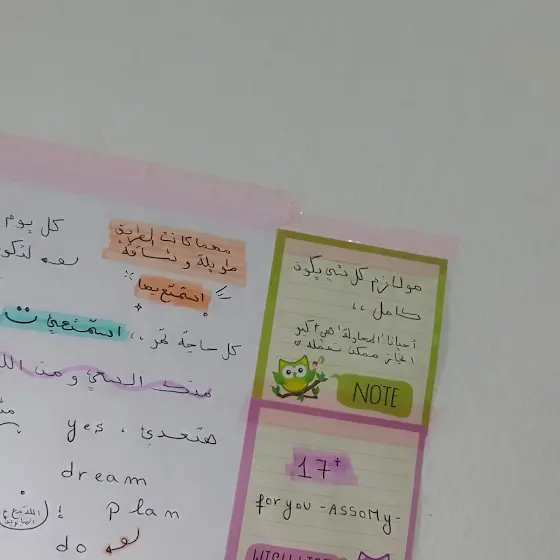 كل يوم
مهما كانت الطريق
طويلة و شاقة
استمتع بها
كل حاجة لخير ,, استمتعي
منك السعي و من الله
هتعدي , yes
dream
plan
do
مو لازم كل شي يكون
كامل ,,
أحيانا "المحاولة" هي أكبر
إنجاز ممكن نعمله
NOTE
17+
for you -ASSOMy-
WISH LIST